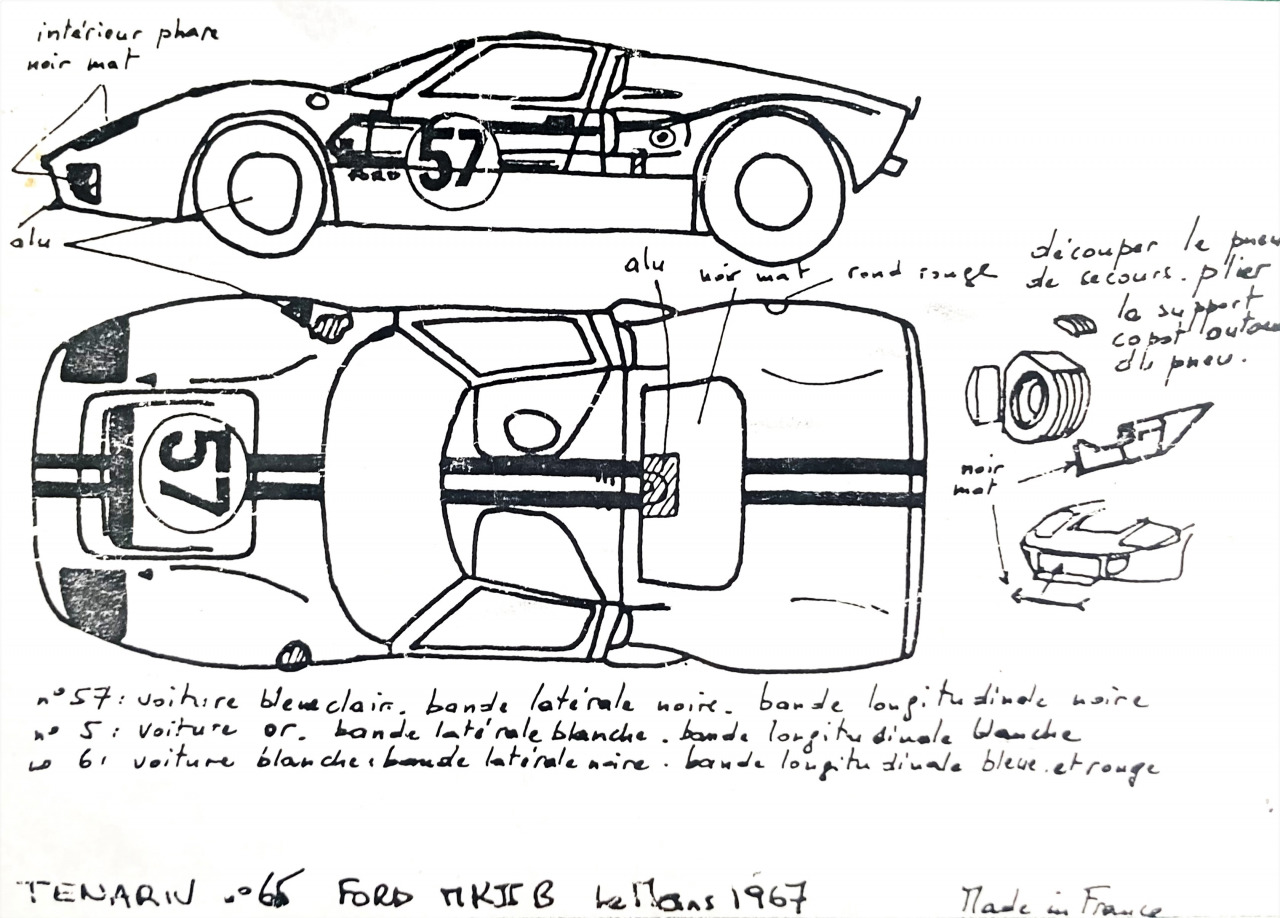 intérieur phare
noir mat
57
FORD
alu
alu
noir mat
rond rouge
découper le pneu
de secours. plier
le support
capot autour
du pneu.
57
noir
mat
n° 57 : voiture bleue clair. bande latérale noire. bande longitudinale noire
n° 5 : voiture or. bande latérale blanche. bande longitudinale blanche
n° 6 : voiture blanche. bande latérale noire. bande longitudinale bleue. et rouge
TENARIV n° 65 FORD MKII B Le Mans 1967
Made in France